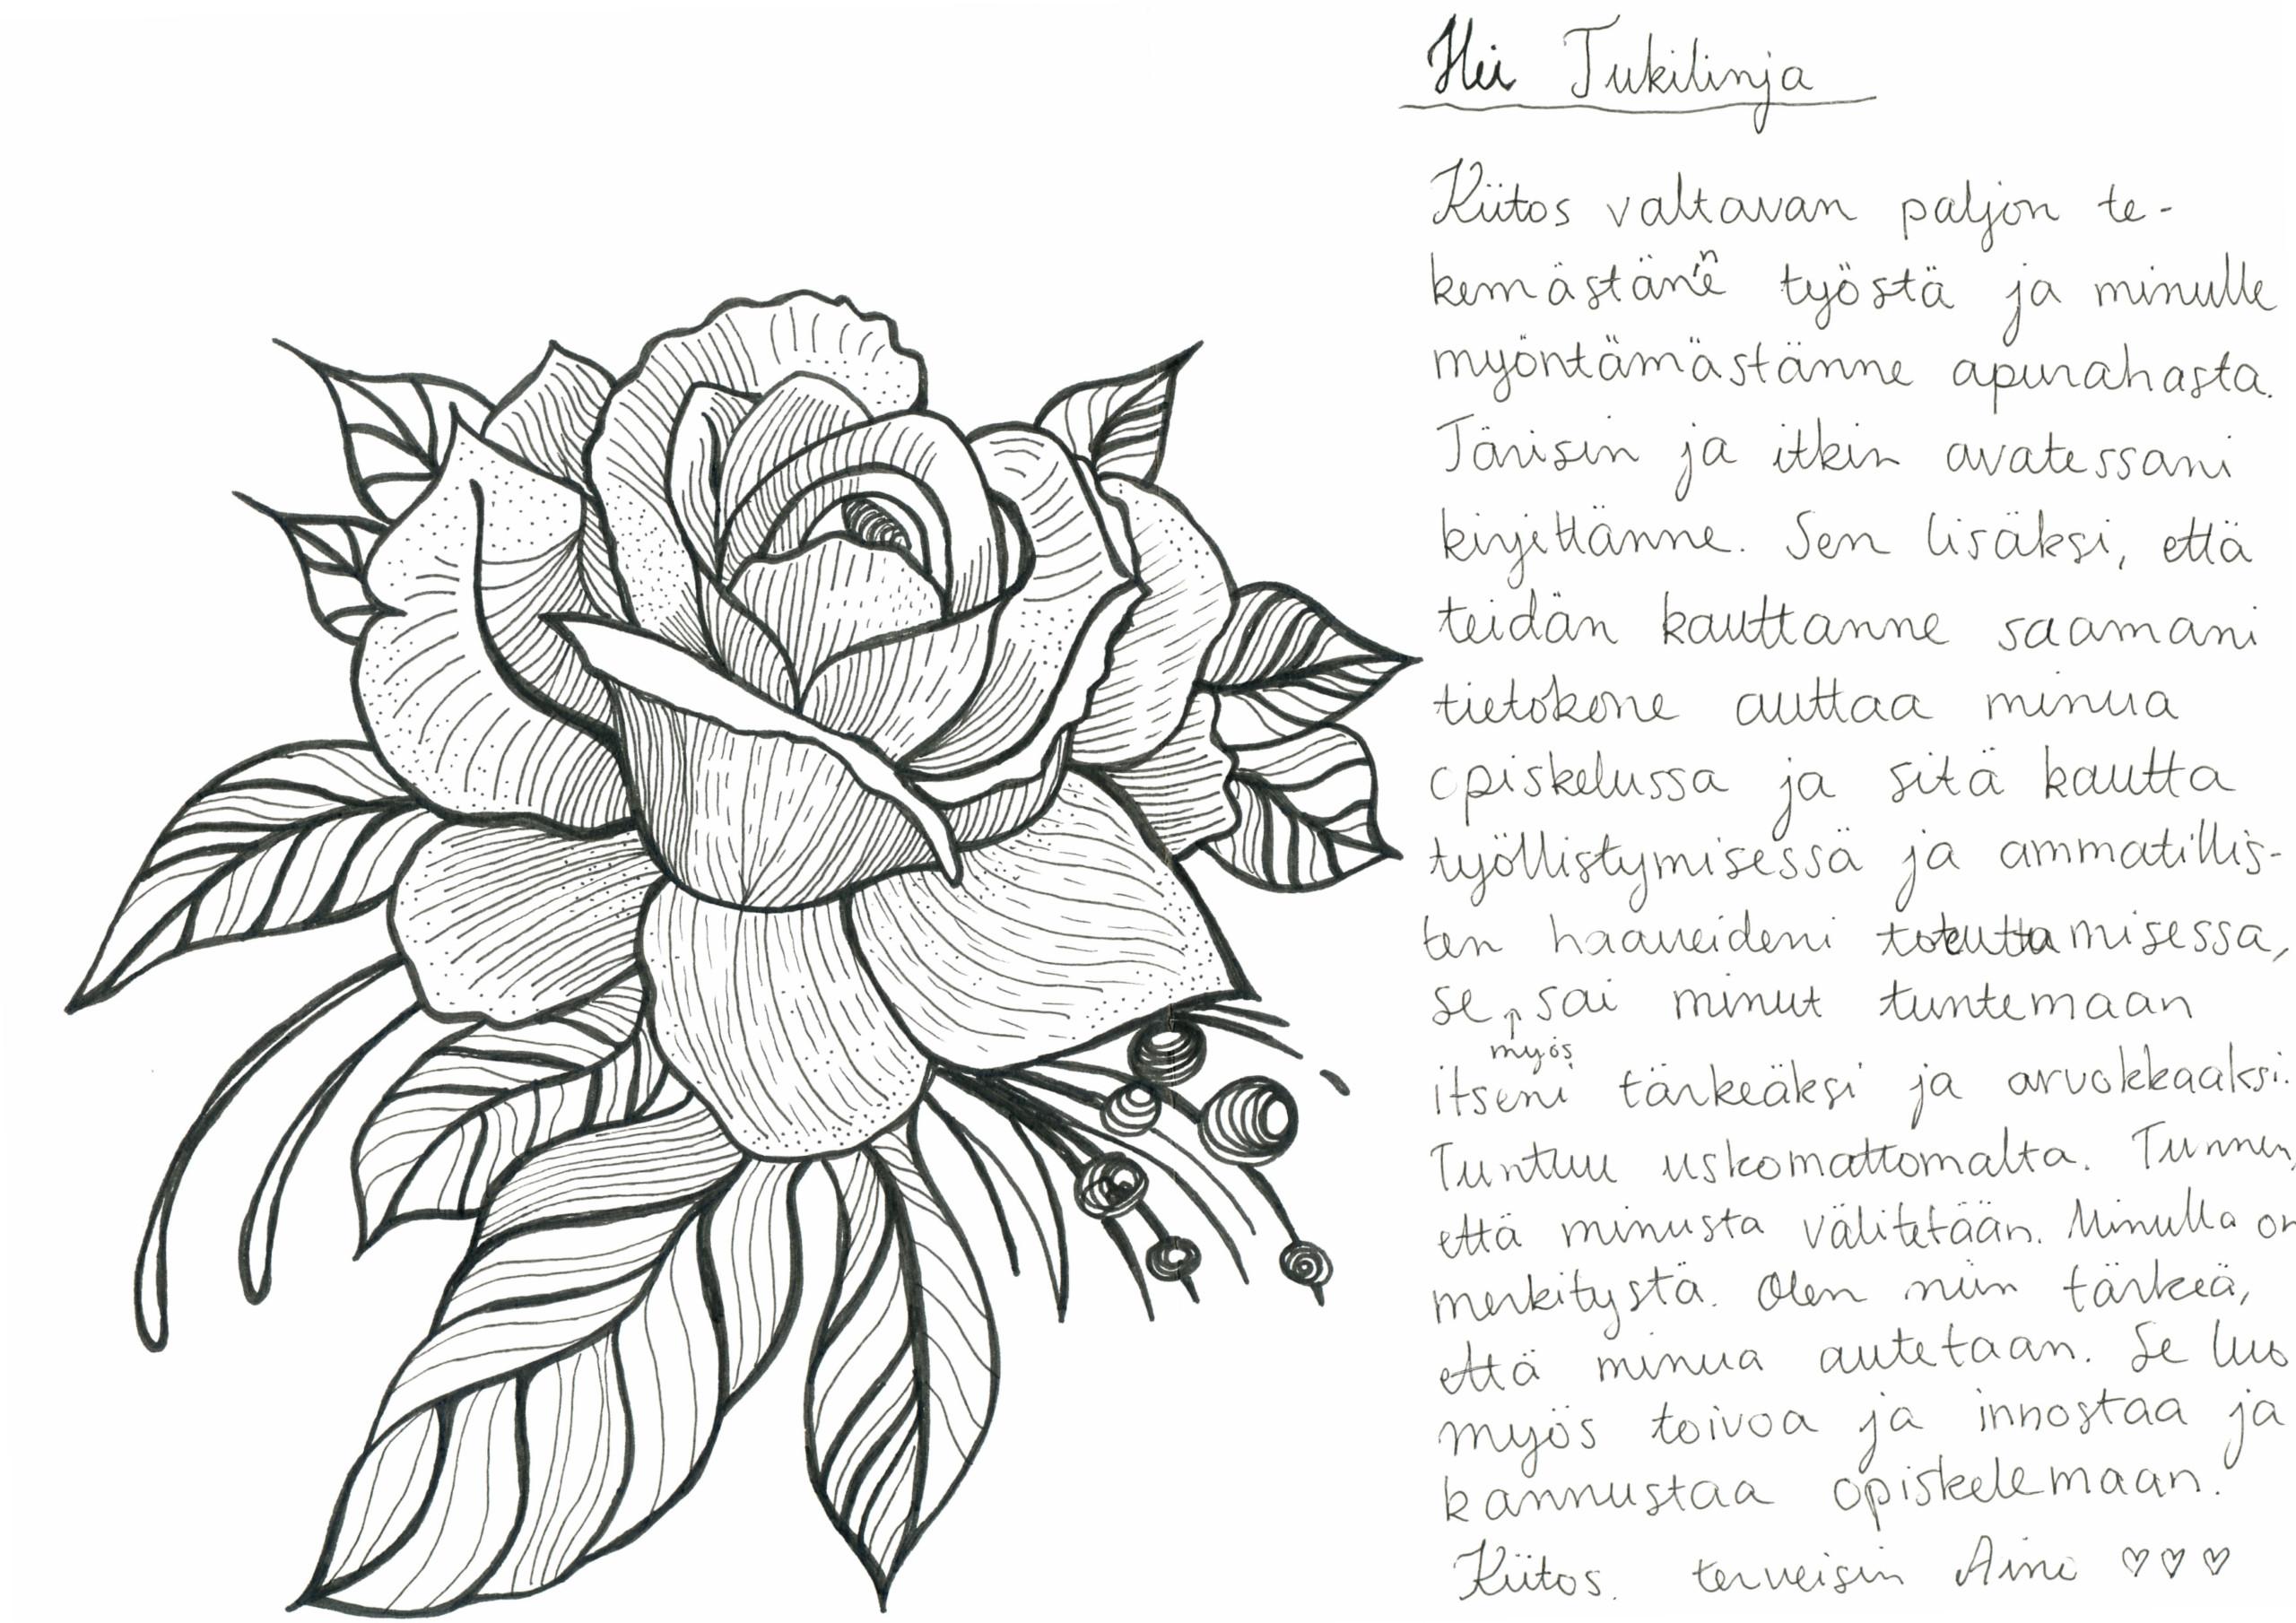 Hei Tukilinja
Kiitos valtavan paljon te-
kemästänne työstä ja minulle
myöntämästänne apurahasta.
Tärisin ja itkin avatessani
kirjettänne. Sen lisäksi, että
teidän kauttanne saamani
tietokone auttaa minua
opiskelussa ja sitä kautta
työllistymisessä ja ammatillis-
ten haaveideni toteuttamisessa,
se myös sai minut tuntemaan
itseni tärkeäksi ja arvokkaaksi.
Tuntuu uskomattomalta. Tunnen,
että minusta välitetään. Minulla on
merkitystä. Olen niin tärkeä,
että minua autetaan. Se luo
myös toivoa ja innostaa ja
kannustaa opiskelemaan.
Kiitos. terveisin Aini ♡♡♡